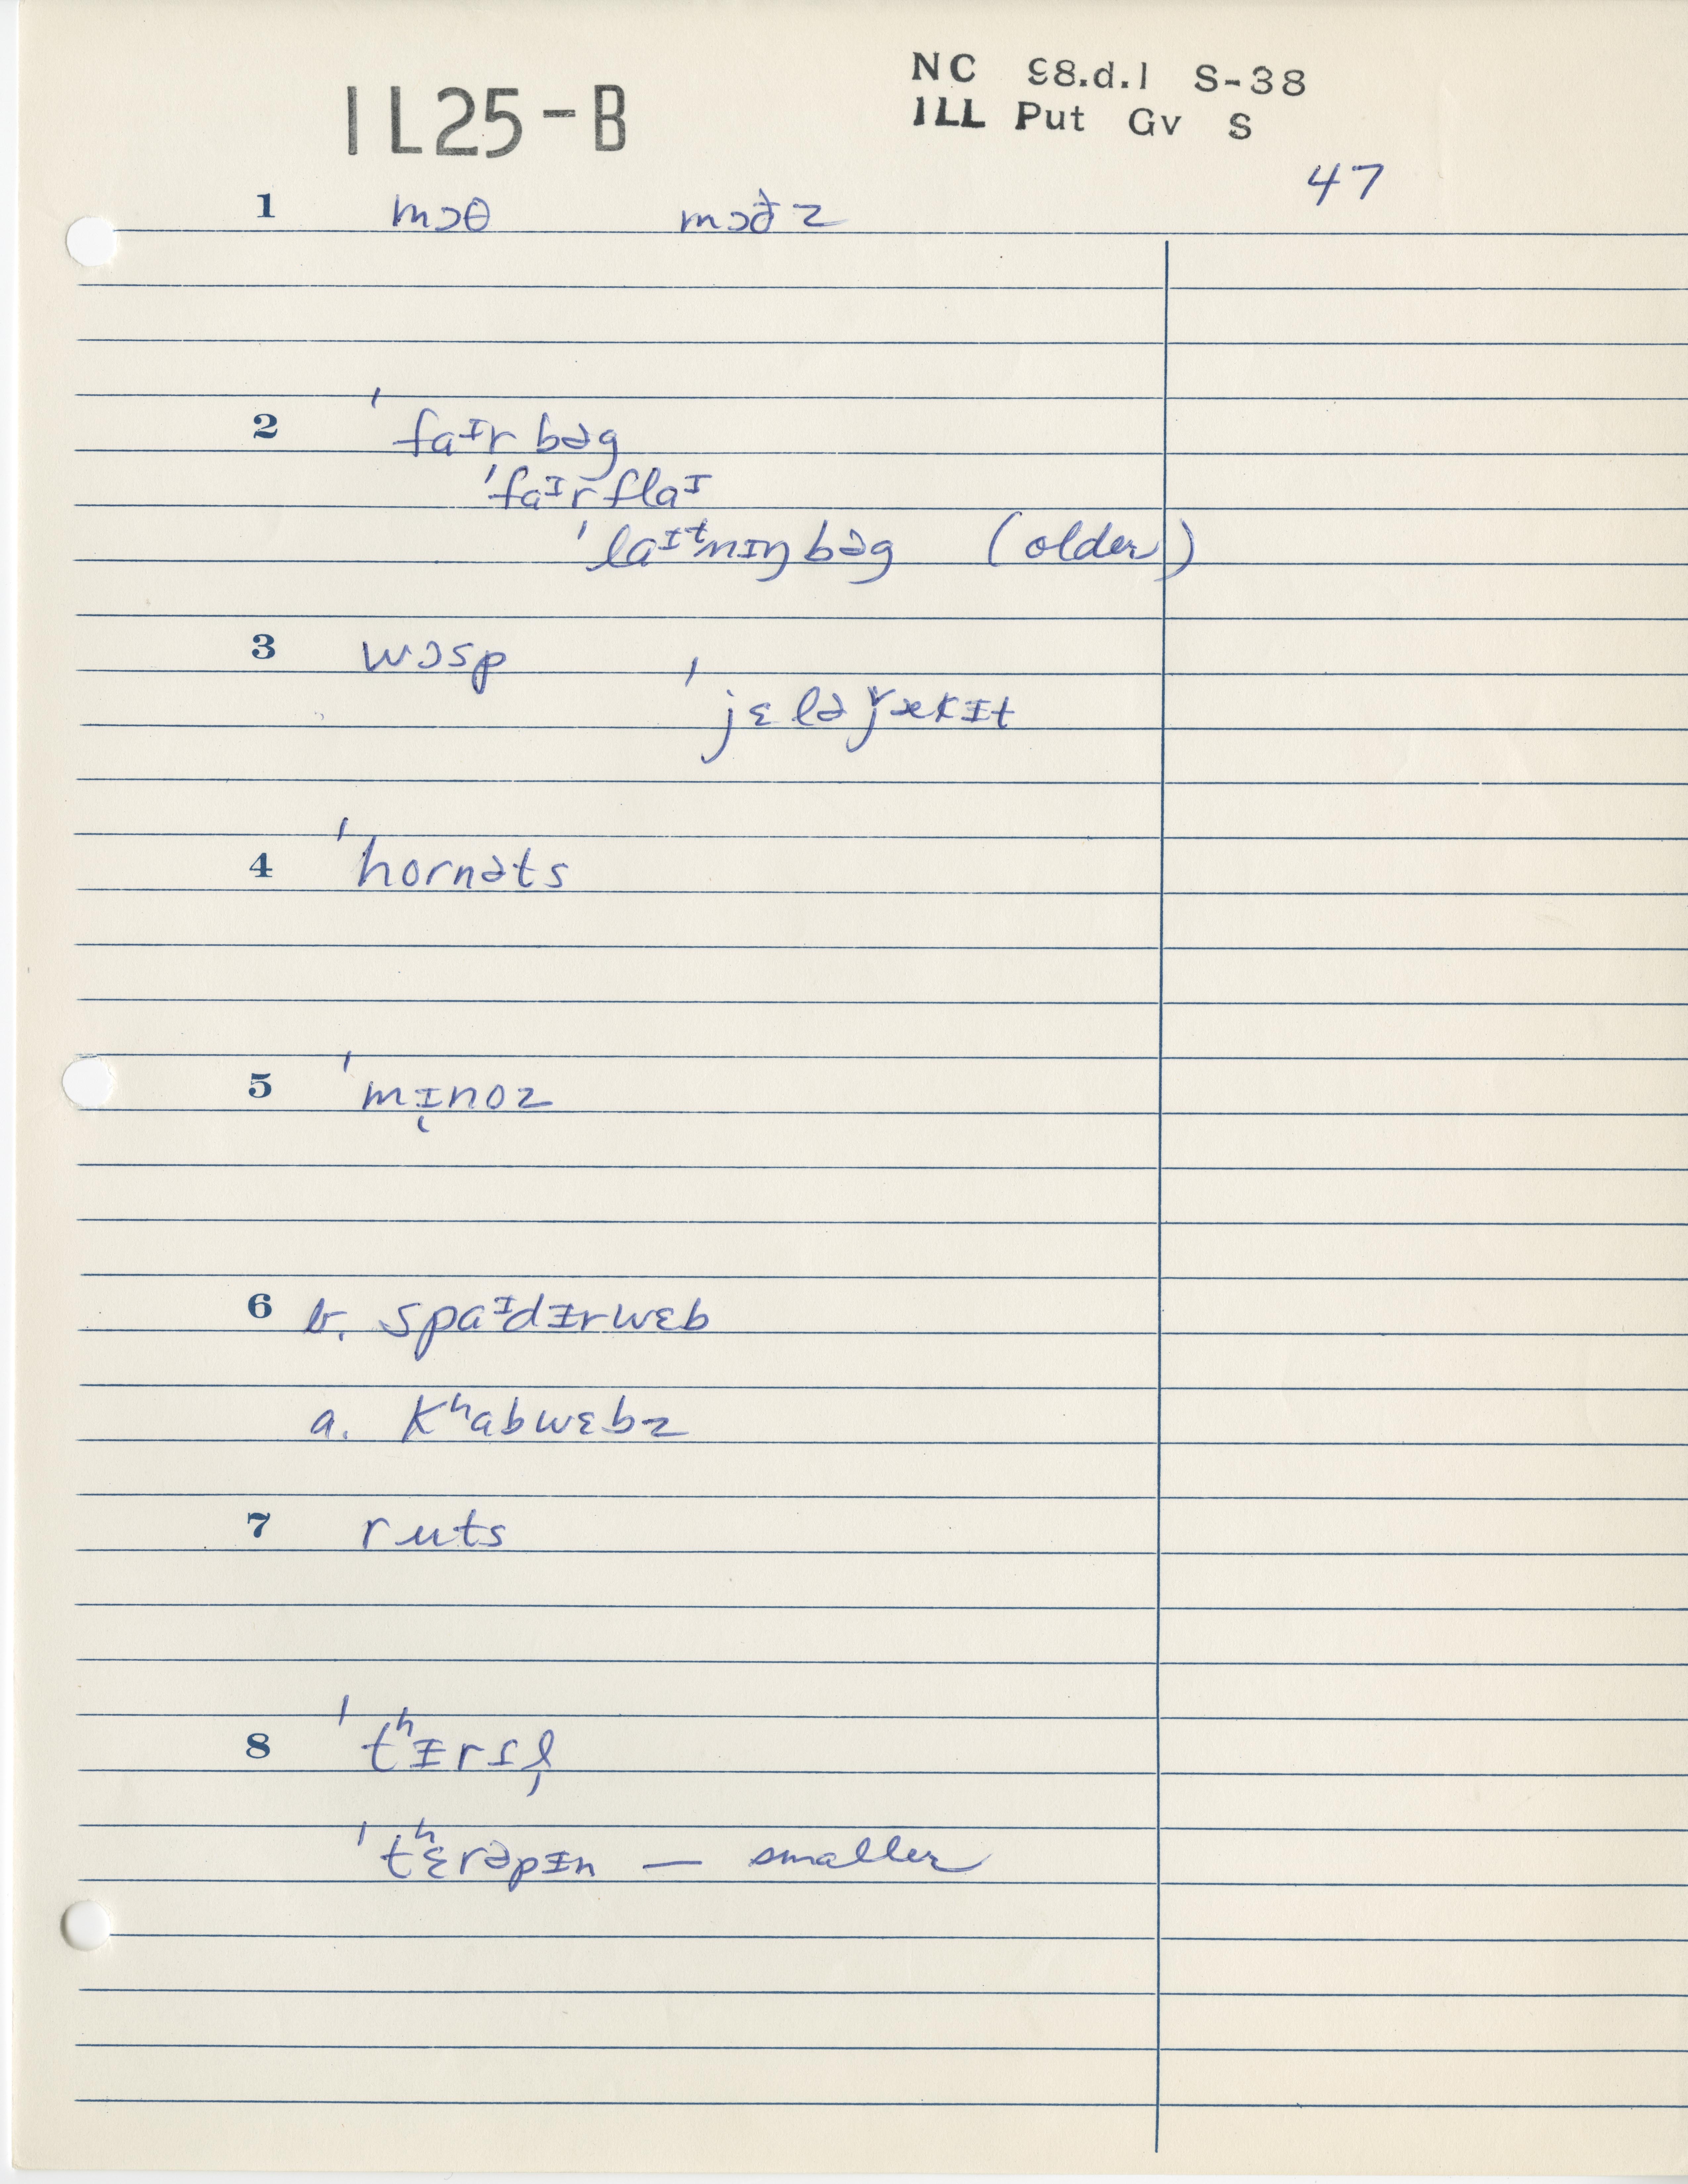 IL25-B
NC 98.d.1 S-38
ILL Put Gv S
47
1 mɔθ mɔðz
2 ˈfaᴵr bəg
ˈfaᴵr flaᴵ
ˈlaᴵᵗnɪŋ bəg (older)
3 wɔsp ˈjɛləǰækɪt
4 ˈhornəts
5 ˈmɪ̜noz
6 b. spaᴵdɪrwɛb
a. kʰabwɛbz
7 ruts
8 ˈtʰɪrsl̩
ˈtʰɛrəpɪn — smaller